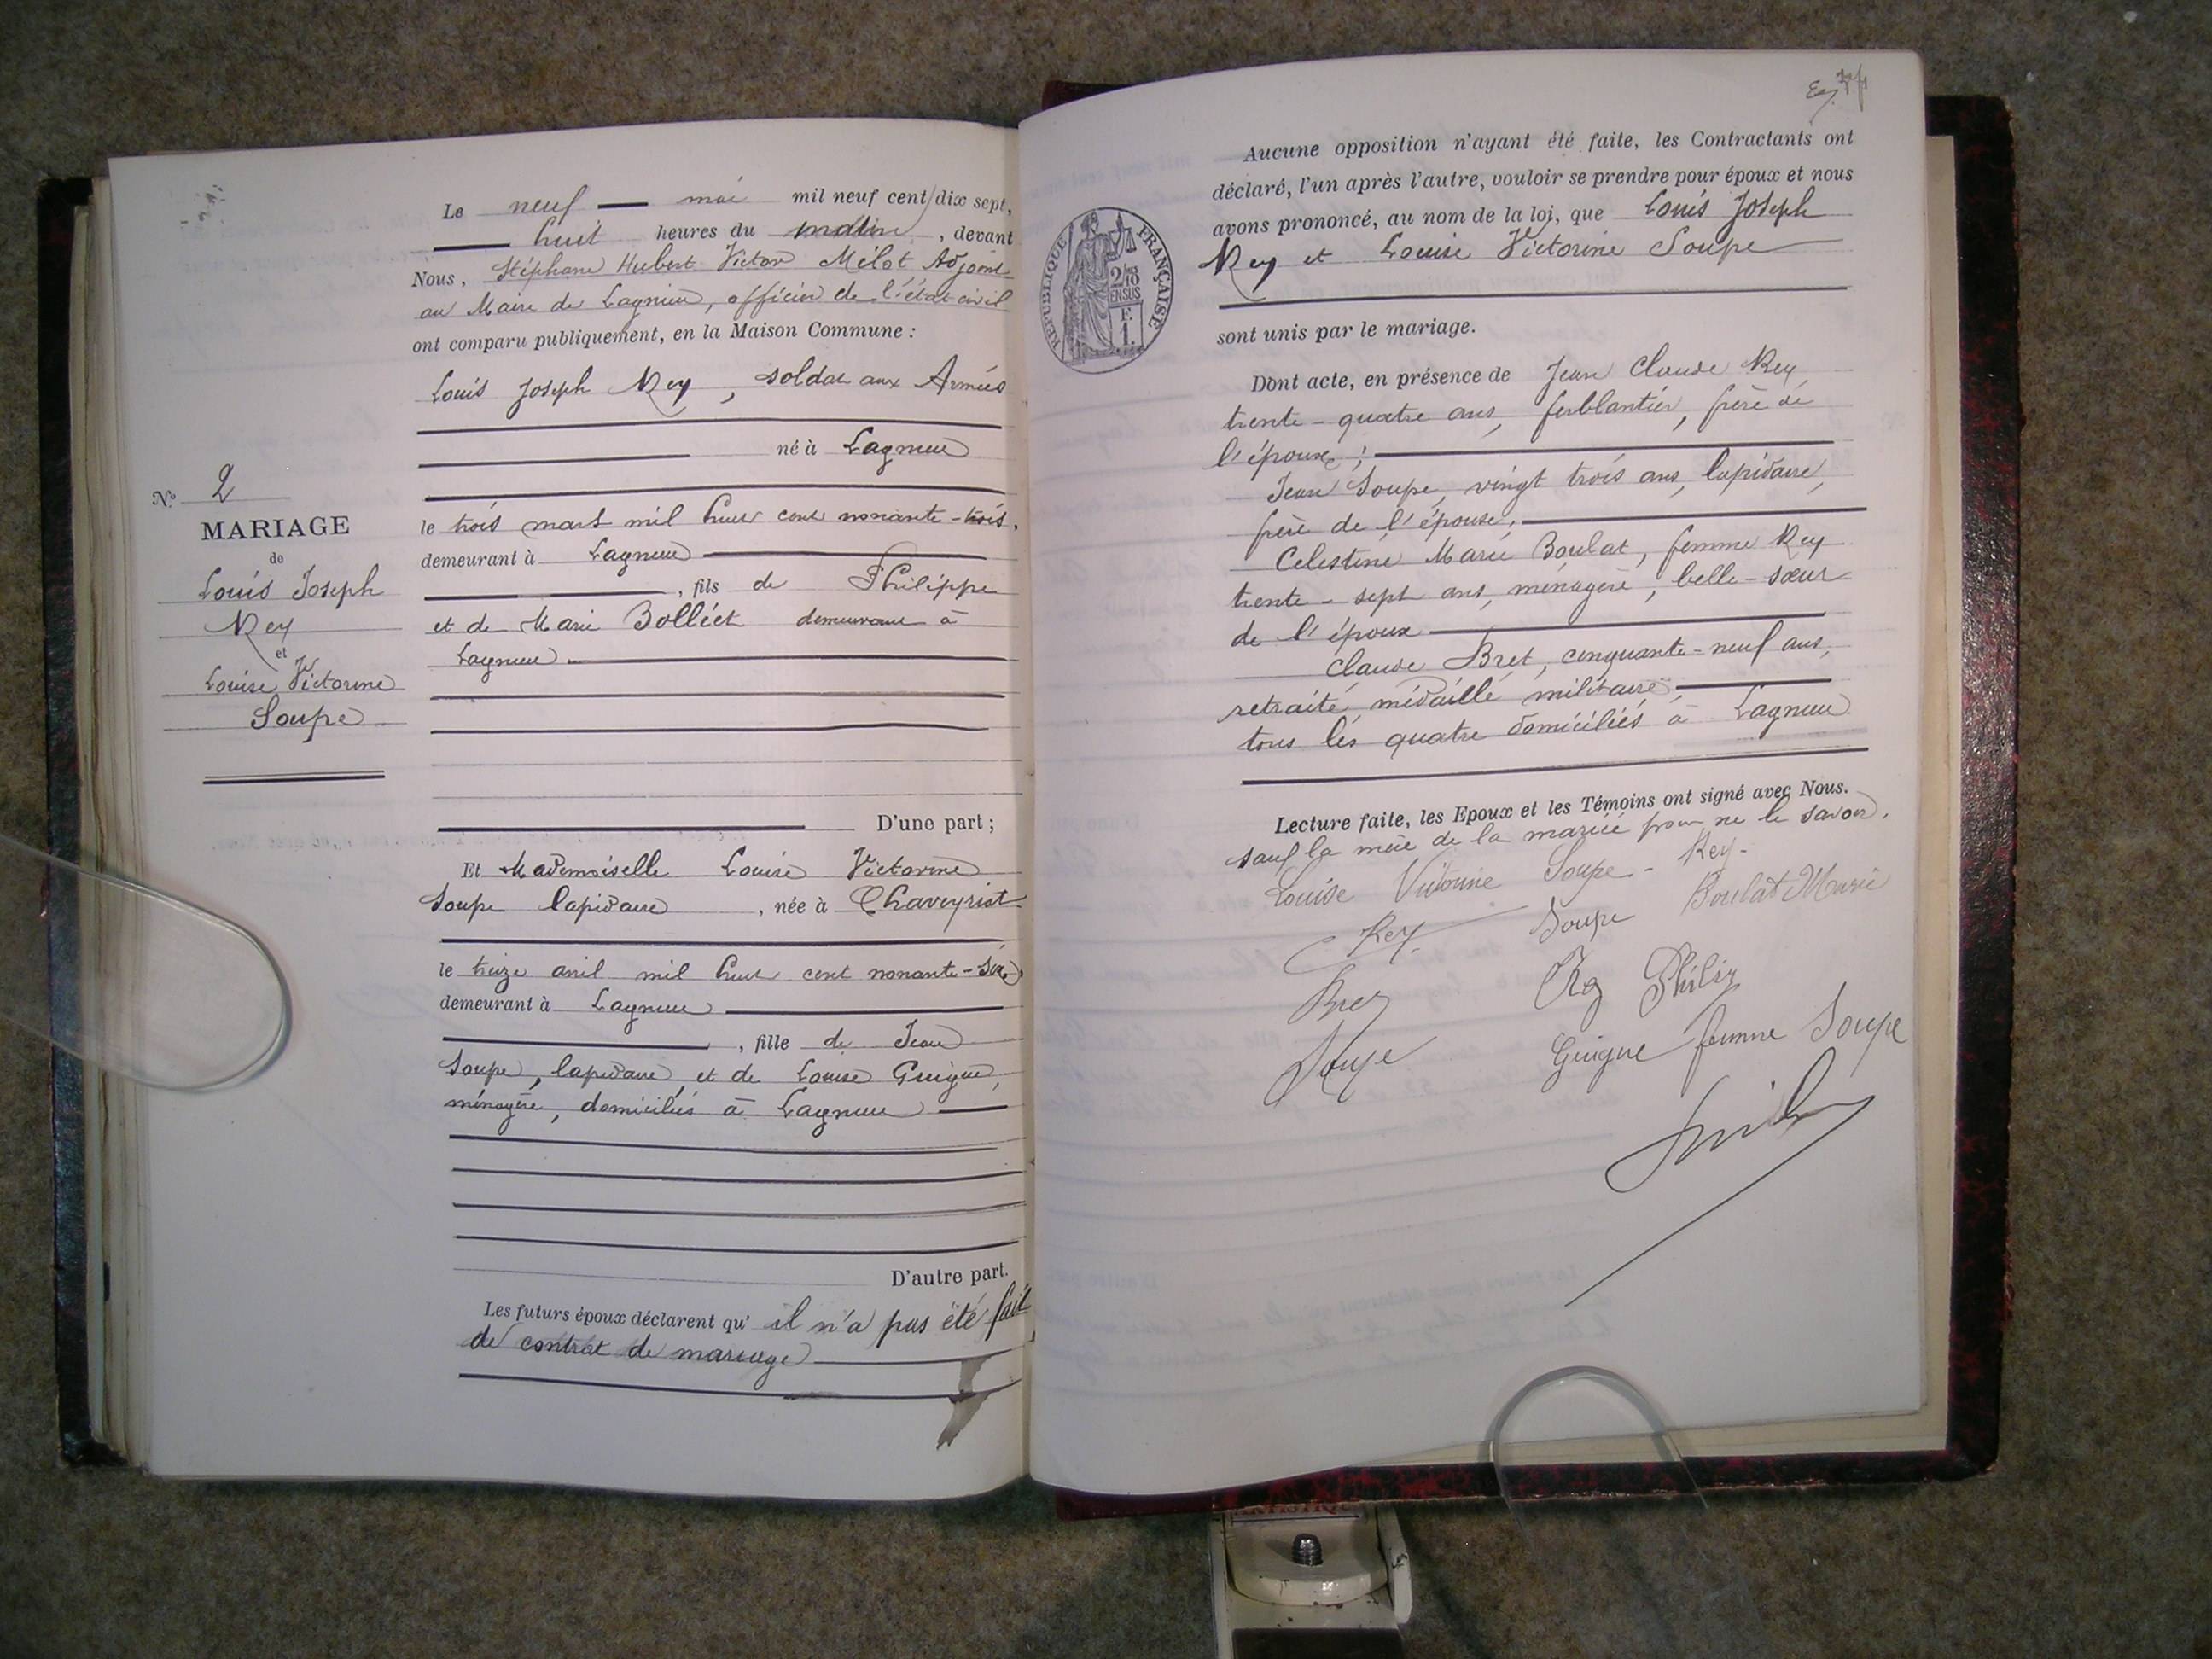 Le neuf mai mil neuf cent dix sept,
huit heures du matin, devant
Nous, Stéphane Hubert Victor Milot Adjoint
au Maire de Lagnieu, officier de l'état civil
ont comparu publiquement, en la Maison Commune :
Louis Joseph Rey, soldat aux Armées
né à Lagnieu
le trois mars mil huit cent nonante-trois,
demeurant à Lagnieu
, fils de Philippe
et de Marie Bolliet demeurant à
Lagnieu
D'une part ;
Et Mademoiselle Louise Victorine
Soupe lapidaire, née à Chaveyriat
le treize avril mil huit cent nonante-six,
demeurant à Lagnieu
, fille de Jean
Soupe, lapidaire, et de Louise Guigue,
ménagère, domiciliés à Lagnieu
D'autre part.
Les futurs époux déclarent qu'il n'a pas été fait
de contrat de mariage
No 2
MARIAGE
de
Louis Joseph
Rey
et
Louise Victorine
Soupe
Aucune opposition n'ayant été faite, les Contractants ont
déclaré, l'un après l'autre, vouloir se prendre pour époux et nous
avons prononcé, au nom de la loi, que Louis Joseph
Rey et Louise Victorine Soupe
sont unis par le mariage.
RÉPUBLIQUE FRANÇAISE
2/10
EN SUS
F.
1.
Dont acte, en présence de Jean Claude Rey
trente-quatre ans, ferblantier, frère de
l'époux ;
Jean Soupe, vingt trois ans, lapidaire,
frère de l'épouse,
Celestine Marie Boulat, femme Rey
trente-sept ans, ménagère, belle-sœur
de l'époux
Claude Bret, cinquante-neuf ans,
retraité, médaillé militaire,
tous les quatre domiciliés à Lagnieu
Lecture faite, les Epoux et les Témoins ont signé avec Nous.
sauf la mère de la mariée pour ne le savoir.
Louise Victorine Soupe - Rey -
Rey Soupe Boulat Marie
Bret Rey Philip
Soupe Guigue femme Soupe